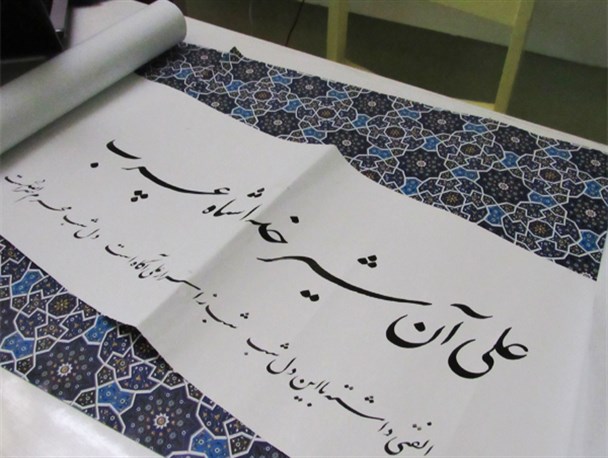 علی آن شیر خدا شاه عرب
الفتی داشته با این دل شب
شب ز اسرار علی آگاه است
دل شب محرم سرّ الله است